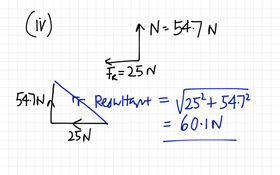 (iv)
N = 54.7 N
F_R = 25 N
54.7N
Resultant = √25² + 54.7²
= 60.1N
25N